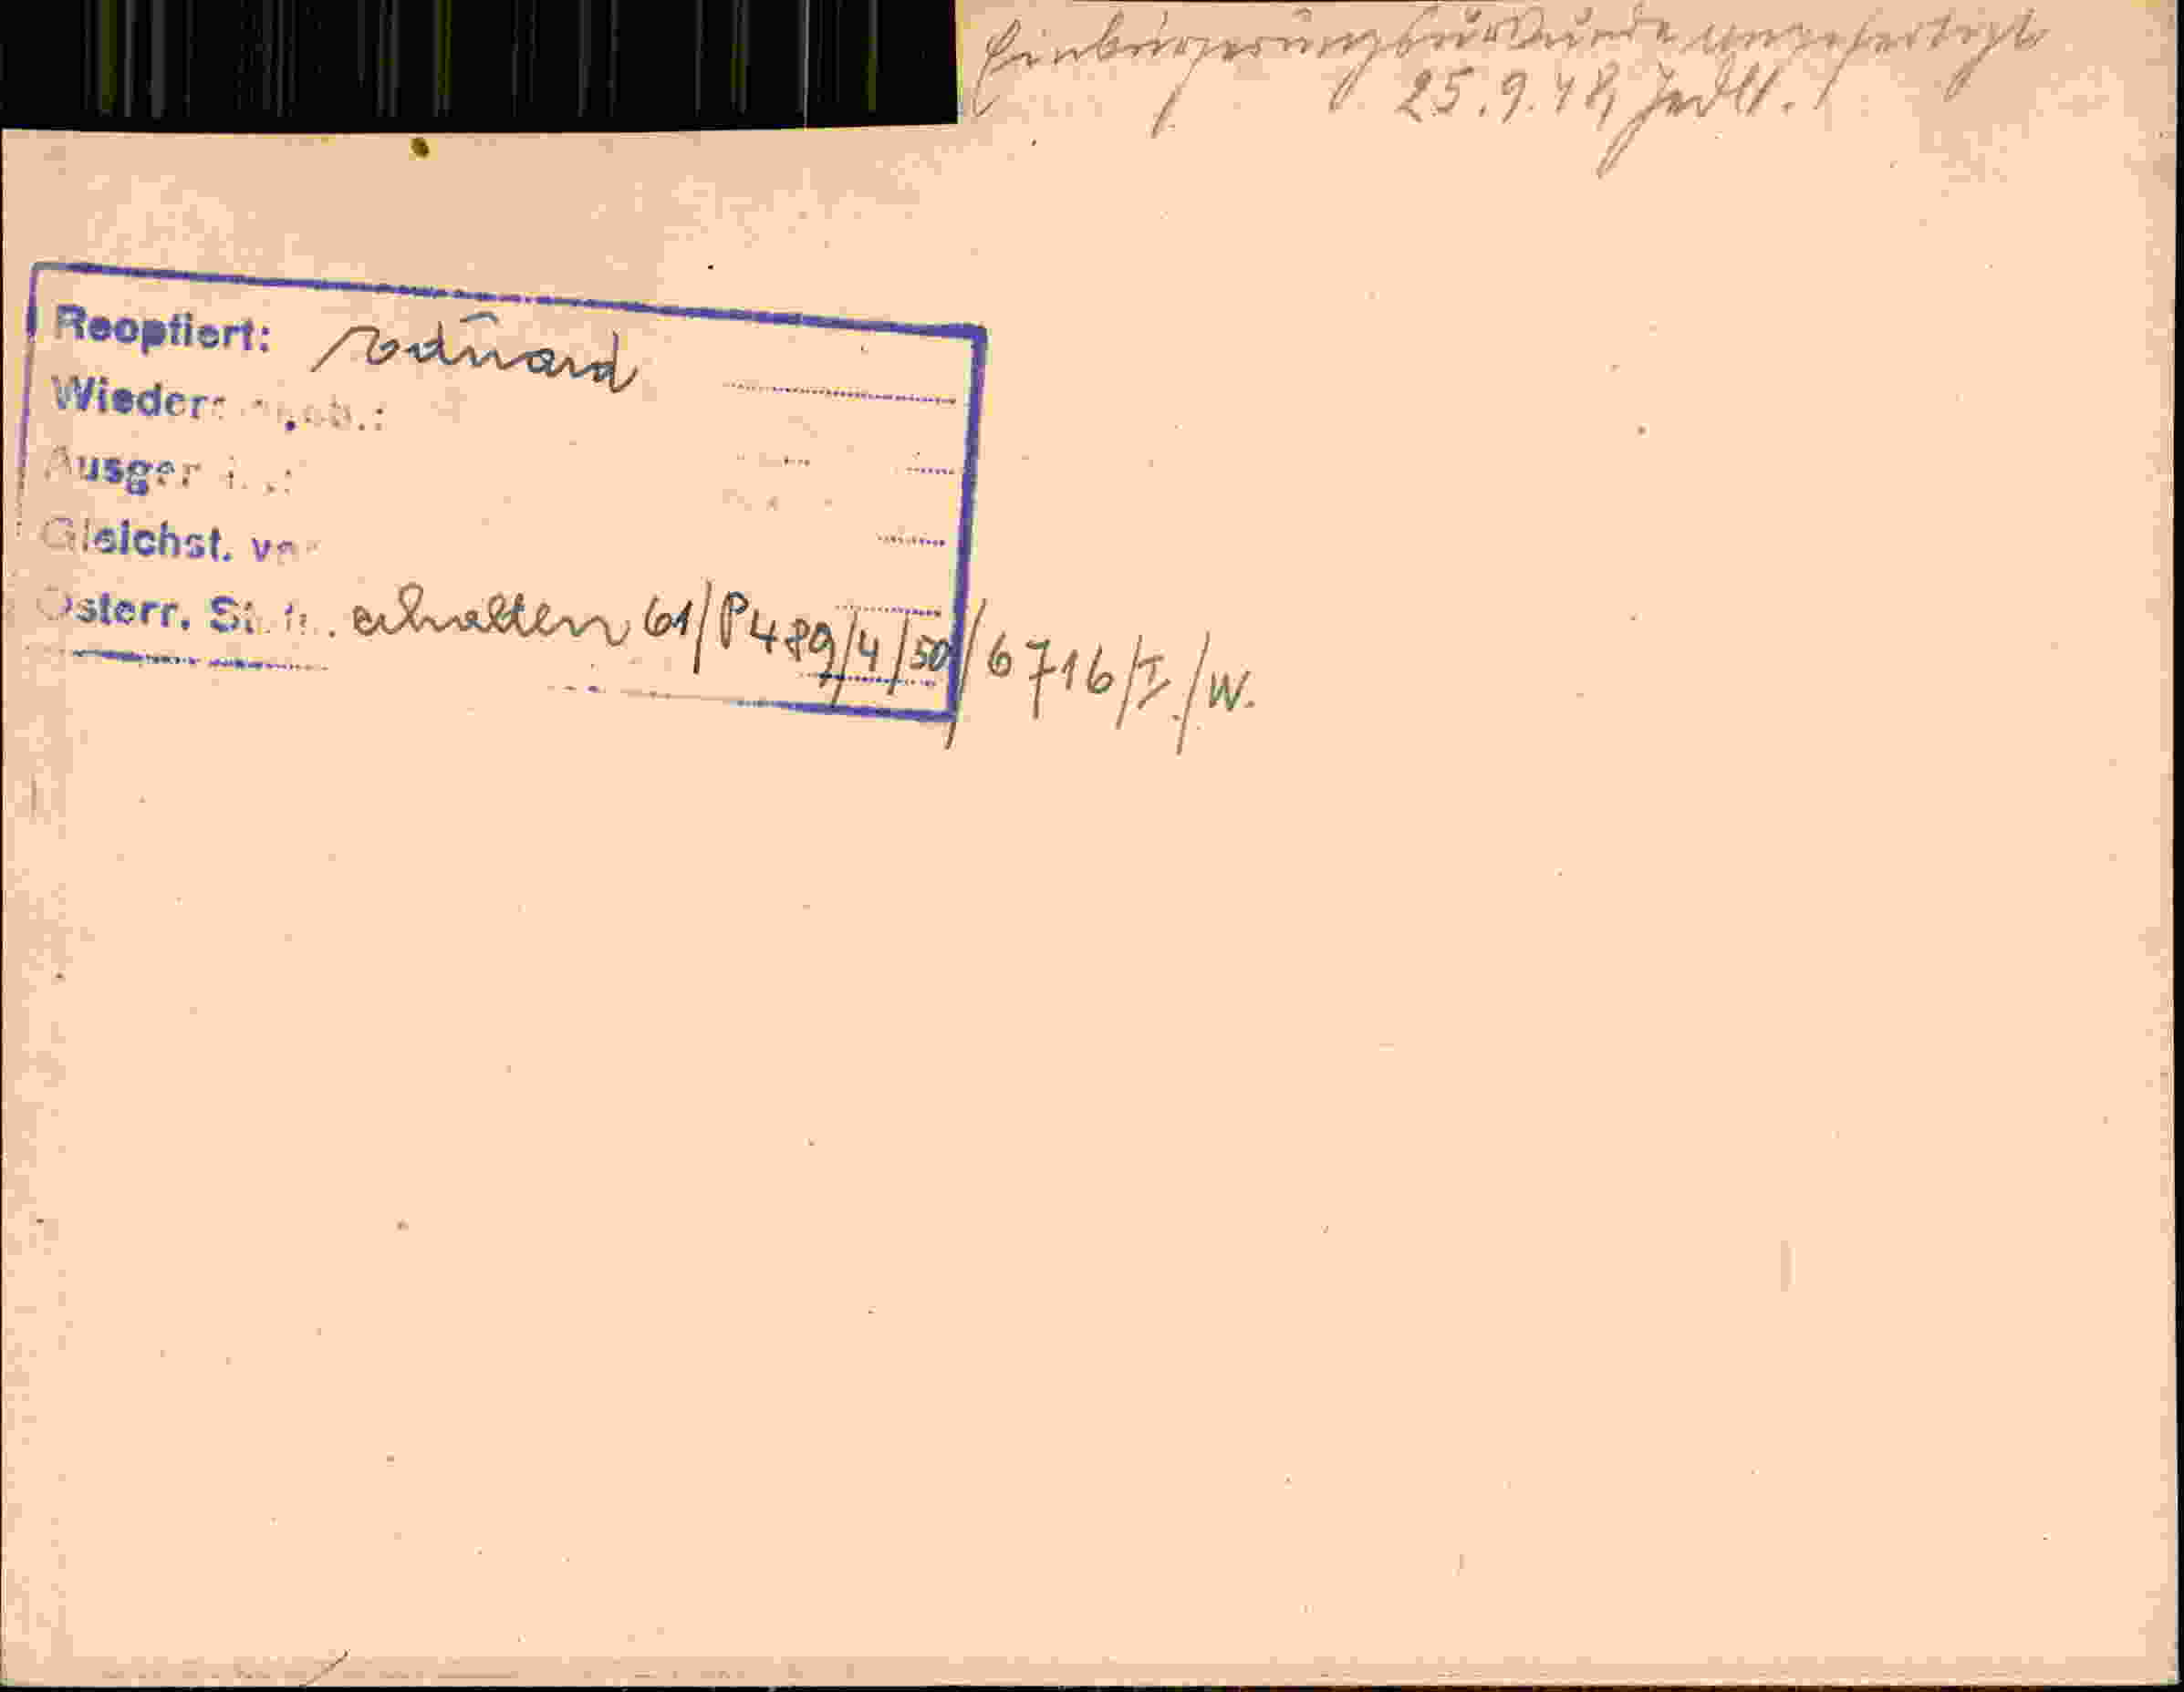 Einbürgerungsurkunde angefertigt
25.9.48
Reoptiert: Eduard
Wieder
Ausger
Gleichst.
Österr. erhalten 61/P489/4/50/6716/I/W.